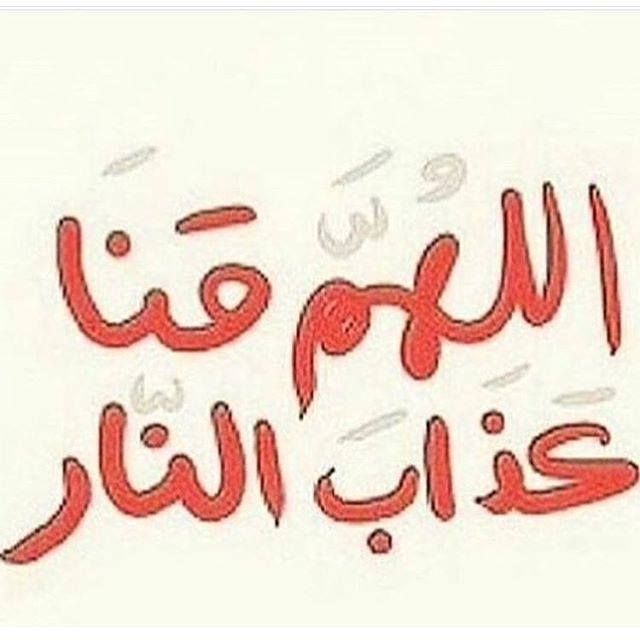 اللهُمَّ قنَا
عَذَابَ النّار